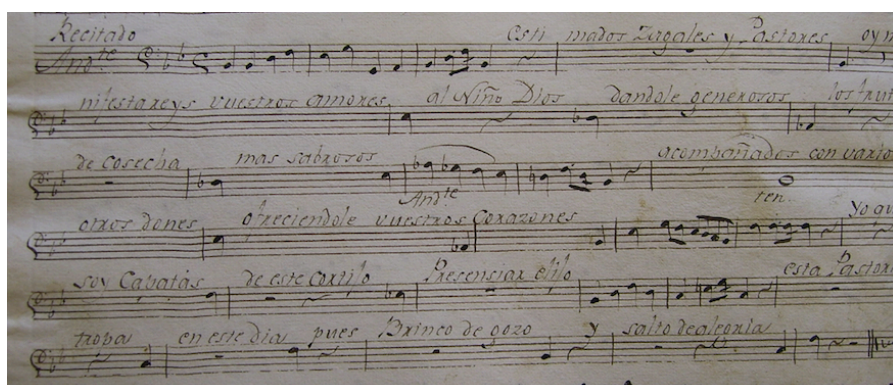 Recitado
And.te esti mados Zagales y Pastores oy m
nifestareys vuestros amores al Niño Dios dandole generosos los frut
de cosecha mas sabrosos acompañados con vario
And.te ten
otros dones ofreciendole vuestros Corazones Yo
soy Capatàs de este Cortijo esta Pastori
tropa en este dia pues Brinco de gozo y salto de alegria